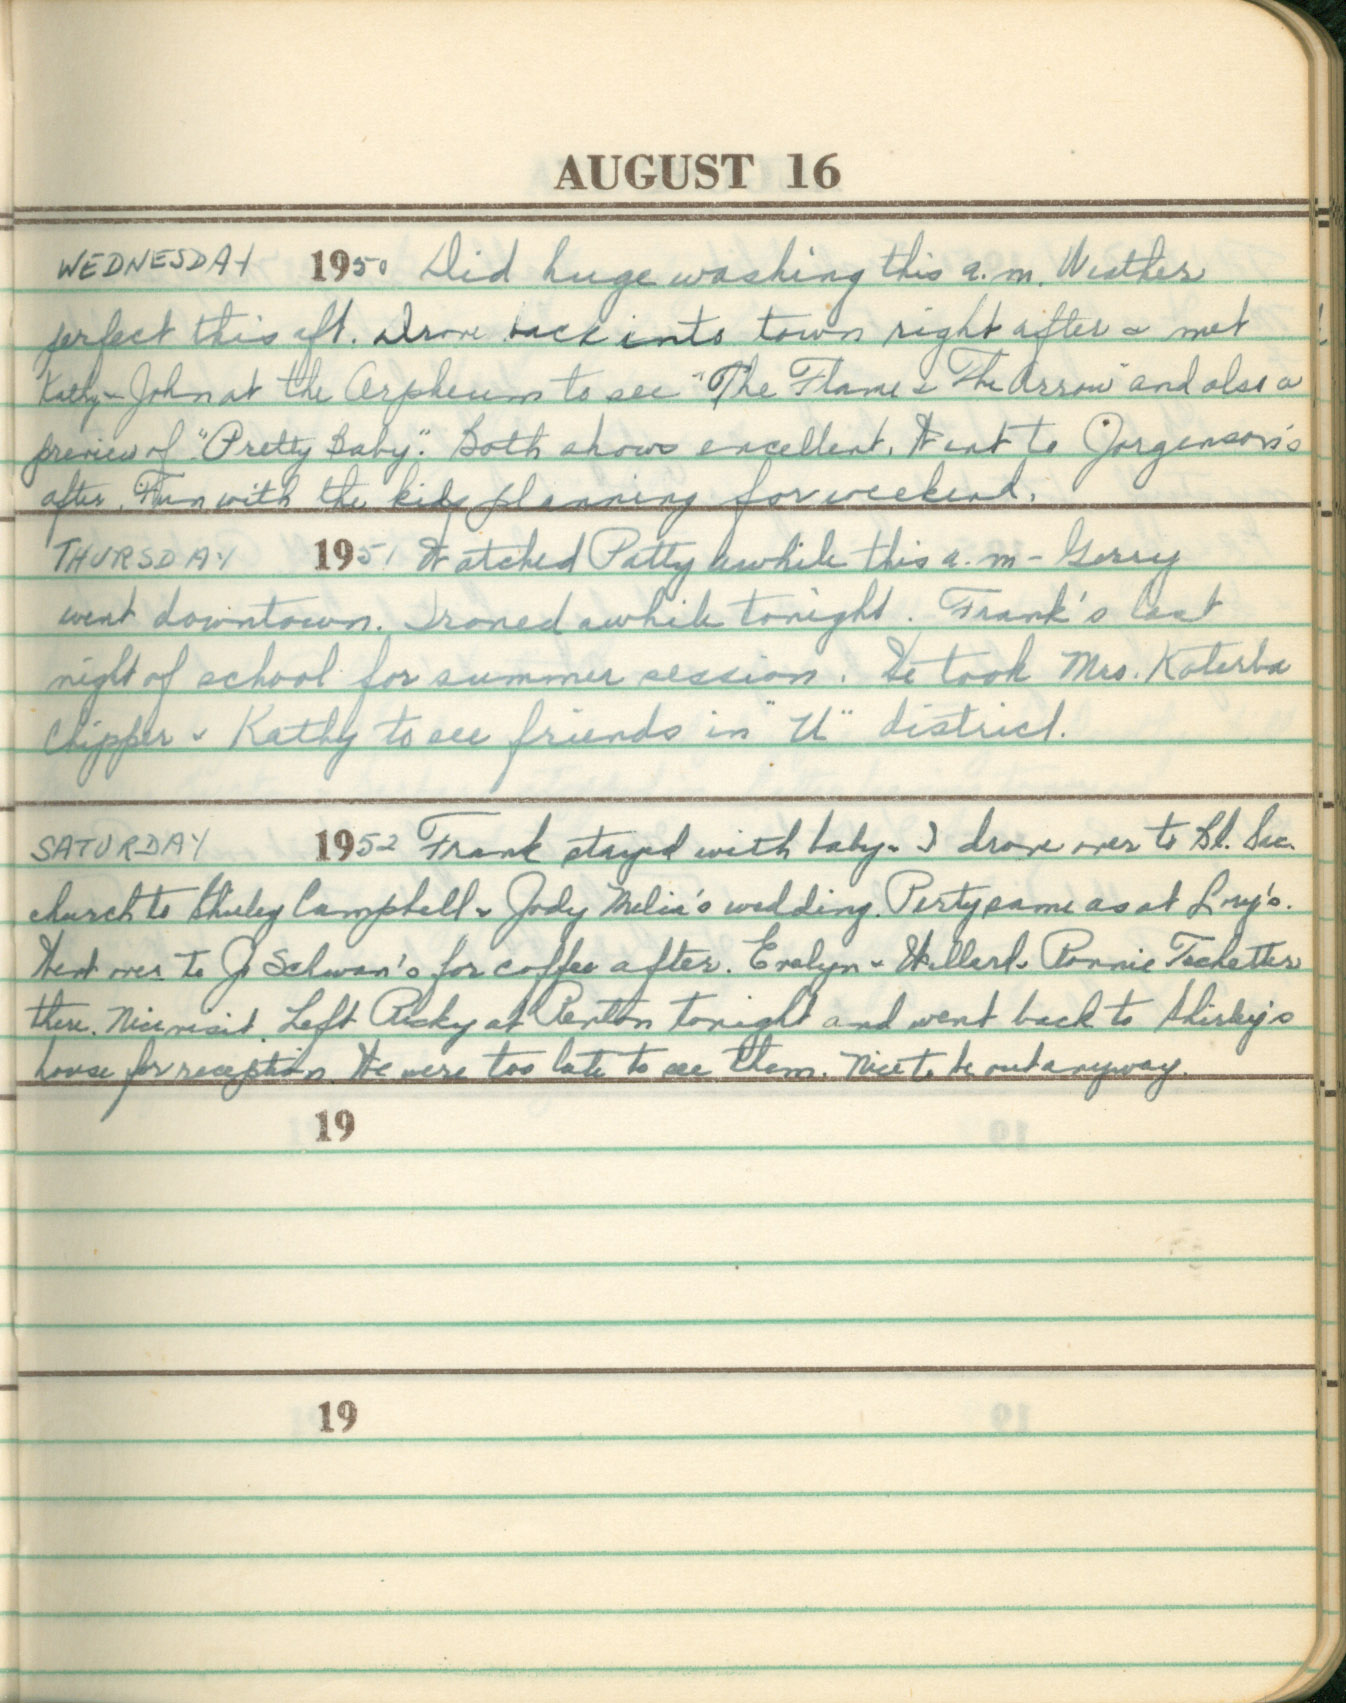 AUGUST 16
WEDNESDAY 1950 Did huge washing this a.m. Weather
perfect this aft. Drove back into town right after & met
Kathy & John at the Orpheum to see "The Flame & The Arrow" and also a
preview of "Pretty Baby". Both shows excellent. Went to Jorgenson's
after. Fun with the kids planning for weekend.
THURSDAY 1951 Watched Patty awhile this a.m - Gerry
went downtown. Ironed awhile tonight. Frank's last
night of school for summer session. He took Mrs. Katerba
Chipper & Kathy to see friends in "U" district.
SATURDAY 1952 Frank stayed with baby & I drove over to Bl. Sac.
church to Shirley Campbell & Jody wedding. Party same as at
Went over to Jo Schwan's for coffee after. Evelyn & Willard & Ronnie
there. Nice visit. Left Ricky at Renton tonight and went back to Shirley's
house for reception. We were too late to see them. Nice to be out anyway.
19
19